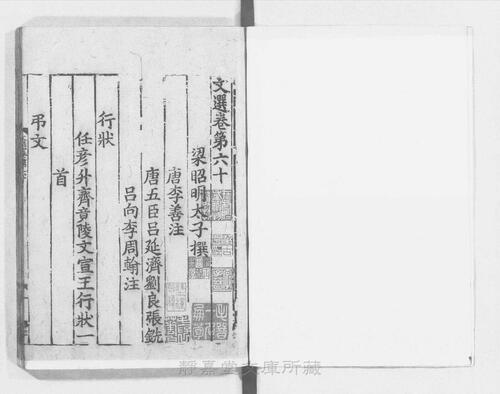 文選卷第六十
梁昭明太子撰
唐李善注
唐五臣呂延濟劉良張銑
呂向李周翰注
行狀
任彥升齊竟陵文宣王行狀一
首
弔文
靜嘉堂文庫所藏